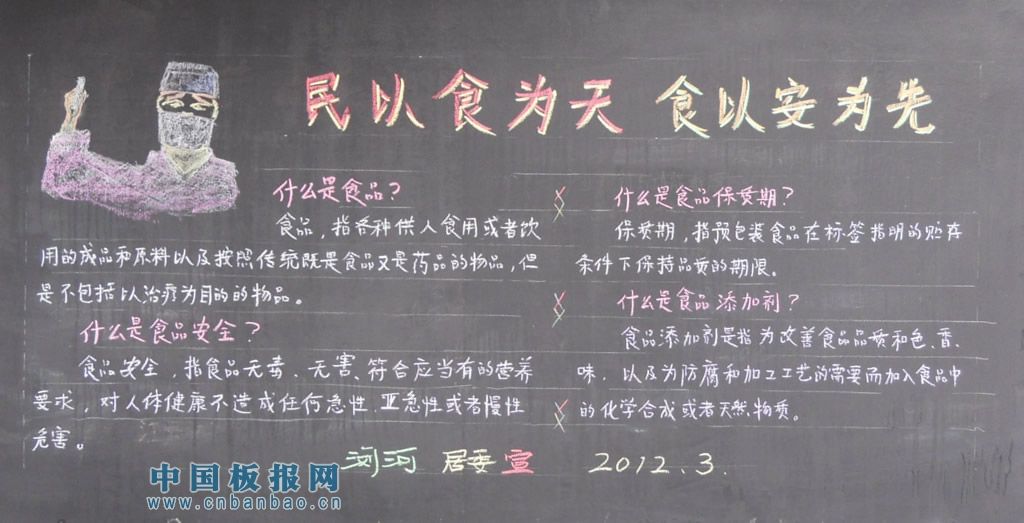 民以食为天 食以安为先
什么是食品？
食品，指各种供人食用或者饮
用的成品和原料以及按照传统既是食品又是药品的物品，但
是不包括以治疗为目的的物品。
什么是食品安全？
食品安全，指食品无毒、无害、符合应当有的营养
要求，对人体健康不造成任何急性、亚急性或者慢性
危害。
什么是食品保质期？
保质期，指预包装食品在标签指明的贮存
条件下保持品质的期限。
什么是食品添加剂？
食品添加剂是指为改善食品品质和色、香、
味，以及为防腐和加工工艺的需要而加入食品中
的化学合成或者天然物质。
浏河 居委 宣 2012.3.
中国板报网
www.cnbanbao.cn